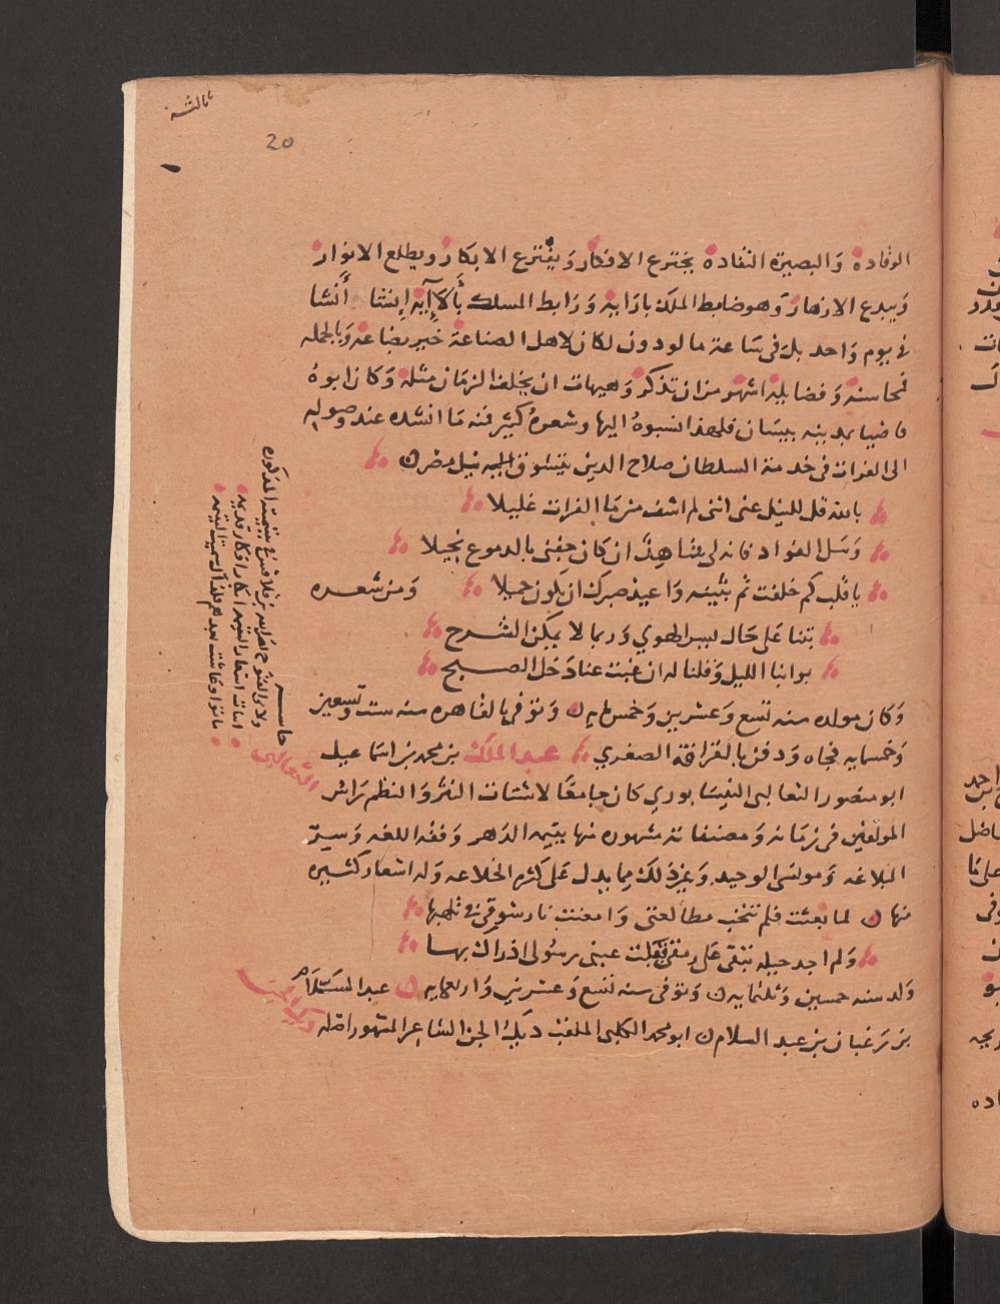 ثالثة
20
الوقادة والبصيرة النقادة يخترع الافكار ويفترع الابكار ويطلع الانوار
ويبدع الازهار وهو ضابط الملك بارايه ورابط السلك بآلآيه ان شا انشا
في يوم واحد بل في ساعة ما لو دون لكان لاهل الصناعة خير بضاعه وبالجمله
فمحاسنه وفضايله اشهر من ان تذكر وهيهات ان يخلف الزمان مثله وكان ابوه
قاضيا بمدينه بيسان فلهذا نسبوه اليها وشعره كثير فمنه ما انشده عند وصوله
الى الفرات في خدمة السلطان صلاح الدين يتشوق اليه نيل مصر
بالله قل للنيل عني انني لم اشف من ما الفرات غليلا
وسل الفواد فانه لي شاهد ان كان جفني بالدموع بخيلا
يا قلب كم خلفت ثم بثينه واعيذ صبرك ان يكون جميلا ومن شعره
بتنا على حال يسر الهوي وربما لا يمكن الشرح
بوابنا الليل وقلنا له ان غبت عنا دخل الصبح
وكان مولده سنه تسع وعشرين وخمسمايه وتوفي بالقاهره سنه ست وتسعين
وخمسمايه فجاه ودفن بالقرافة الصغري عبد الملك بن محمد بن اسماعيل
الثعالبي
ابو منصور الثعالبي النيسابوري كان جامعا لاشتات النثر والنظم راس
المولفين في زمانه ومصنفاته مشهوره منها يتيمه الدهر وفقه اللغه وسر
البلاغه ومونس الوحيد وغير ذلك مما يدل على كثره اطلاعه وله اشعار كثيره
منها لما بعثت فلم تتخب مطالعتي وامعنت نار شوقي في تلهبها
ولم اجد حيله تبقي على رمقي قبلت عيني رسولي اذ راك بها
ولد سنه خمسين وثلثمايه وتوفى سنه تسع وعشرين واربعمايه عبد السلام
ديك الجن
بن رغبان بن عبد السلام ابو محمد الكلبي الملقب ديك الجن الشاعر المشهور اصله
حاشيه
ولابي الفتوح نصر الله بن قلاقس في يتيمة المذكوره
ابيات اشعار اليتيمه ابكار افكار قديمه
ماتوا وعاشت بعدهم فلذاك سميت اليتيمه